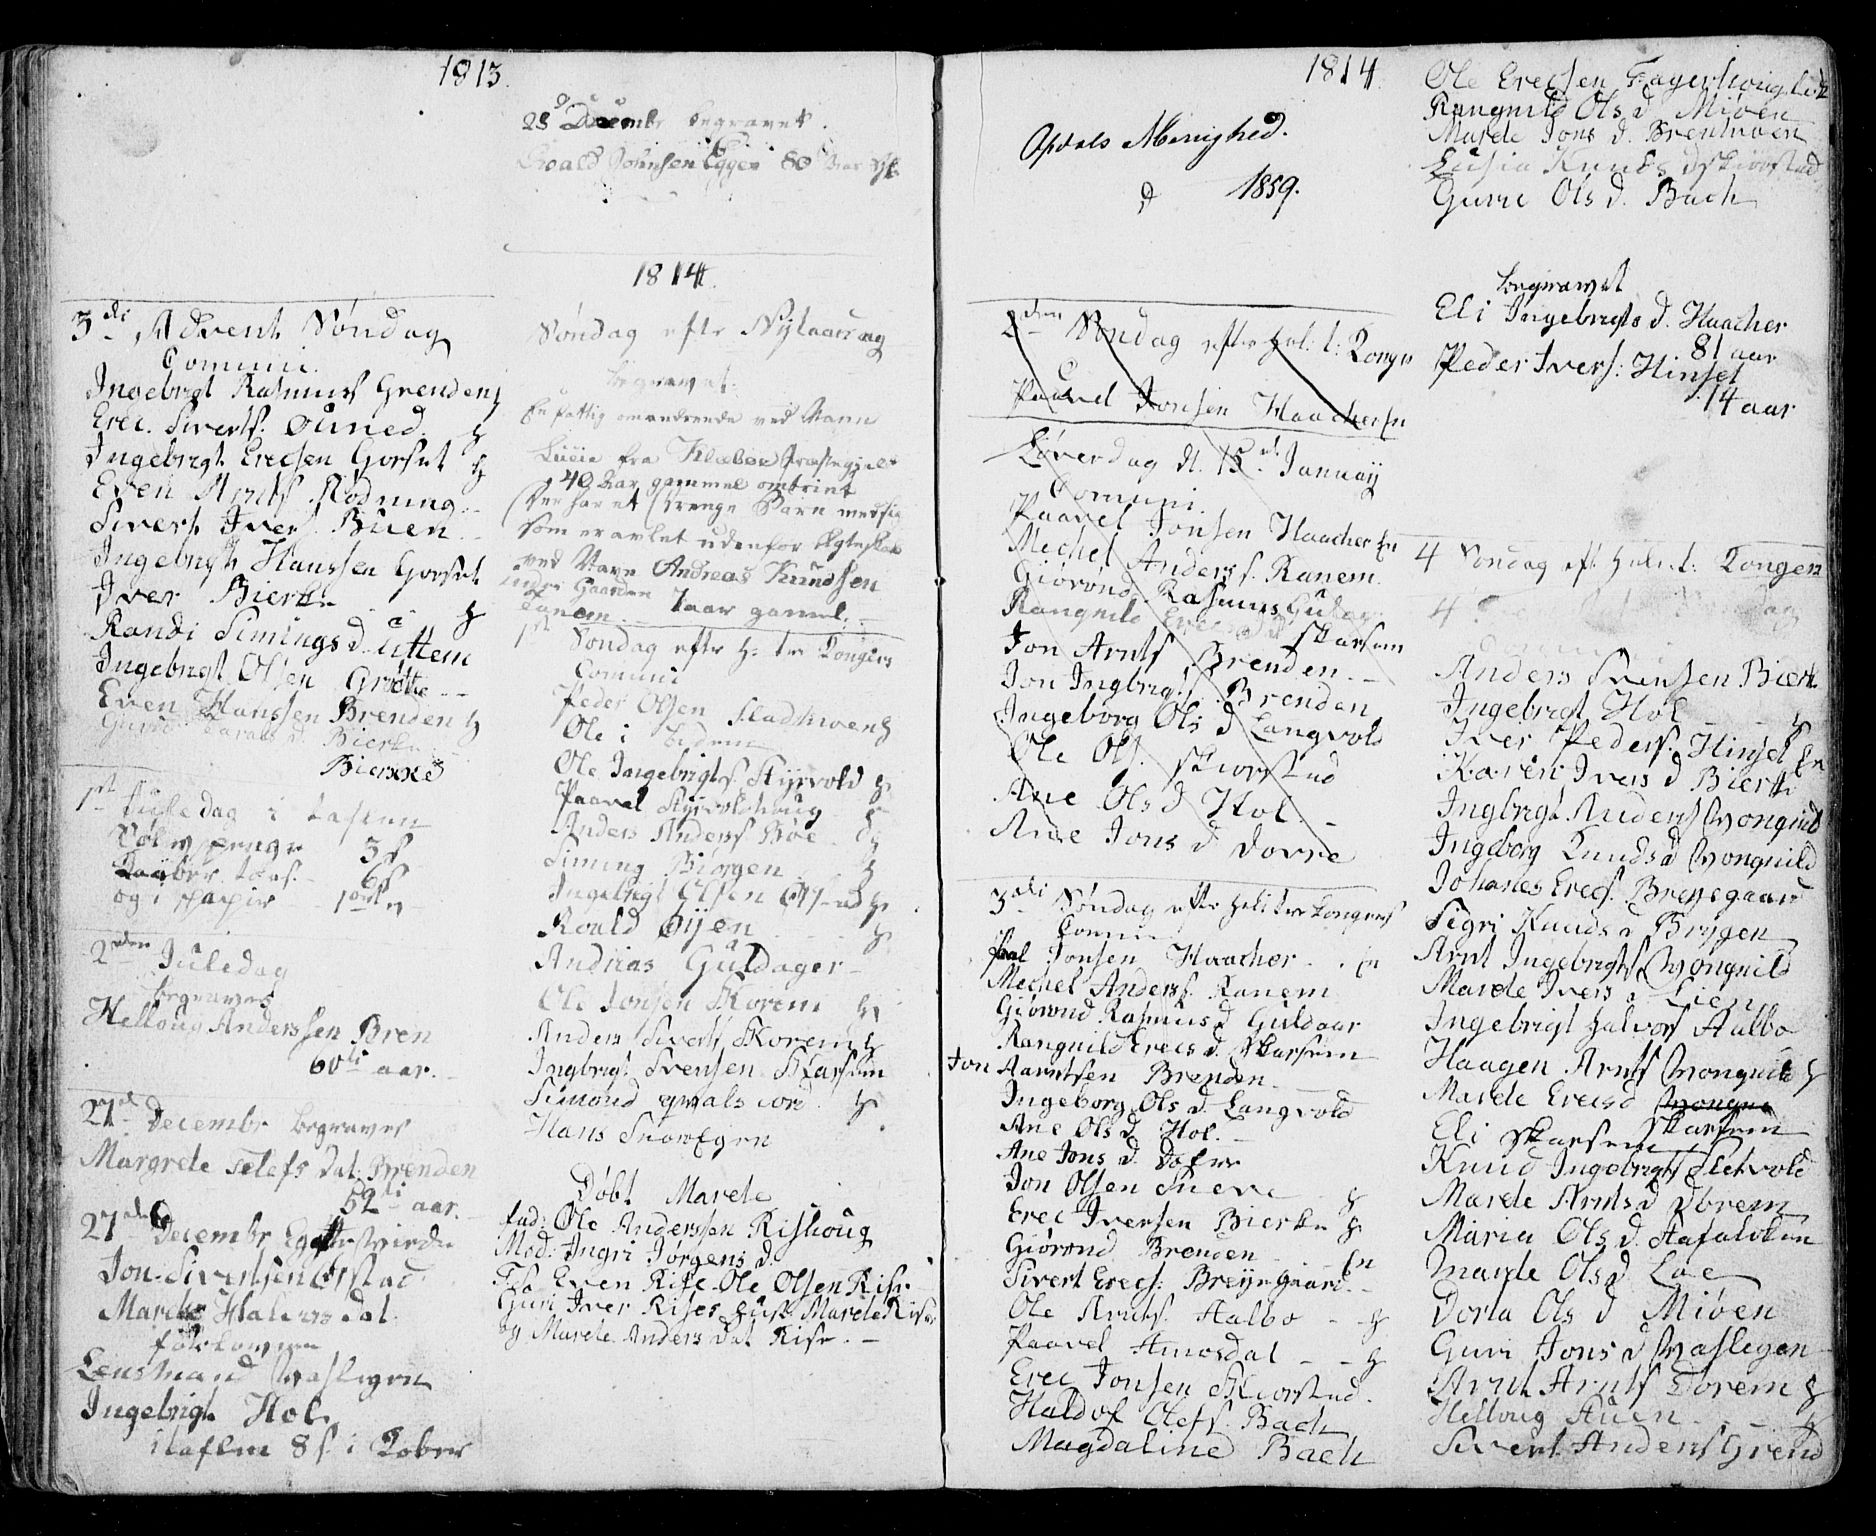 1813.
3di Advent Søndag
Comuni.
Ingebrigt Rasmus Grenden
Erec. Siverts. Ouned.
Ingebrigt Erecsen Gorset
Even Arnts. Nodning
Sivert Ivers. Buen
Ingebrigt Hanssen Gorset
Iver Bierke
Randi Simings d. Uttem
Ingebrigt Olsen Grötte
Even Hanssen Brenden
Guri d. Bierke
Bierke
1st Juledag i tasen
penge 3 s
6 s
og i papir 1 ort
2den Juledag
begraves
Helloug Anderssen Bren
60ti aar.
27de Decembr begraves
Margrete Telefs Dat. Brenden
52ti aar.
27de Decembr Egteviede
Jon Sivertsen Orstad
Marete Halvors dat.
forlovere
Lensmand Vaslegen
Ingebrigt Hol
i taflen 8 s. i Kober
28 Decembr begravet.
Roald Johnsen Egger 80 Aar
1814.
Søndag efter Nytaarsdag
begravet.
En fattig omvandrende ved Navn
Lucie fra Klæboe Præstegield
40 Aar gammel omtrint
Der har et Drenge Barn med sig
som er avlet udenfor Egteskab
ved Navn Andreas Knudsen
Gaarden
Tanem 7 aar gamel.
1st Søndag efter H: tre Konger
Comuni
Peder Olsen Stadhuven
Ole i
Ole Ingebrigts. Styrvold
Paavel Styrvoldhaug
Anders Anders. Böe
Siming Biörgen
Ingebrigt Olsen
Roald Öijen
Andrias Guldager
Ole Jonsen Skorem
Anders Siverts Skorem
Ingbrigt Svensen Skarsem
Simond
Hans Snoweggen
Døbt Marete
fad: Ole Anderssen Rishoug
Mod: Ingri Jörgens d.
Fad. Even Rise Ole Olsen Rise
Guri Iver Rises hust. Marete Rise
og Marete Anders dat Rise.
1814.
Opdals Menighed.
d 1859.
2den Søndag efter Hel: t: Konger
Paavel Jonsen Haacher
Løverdag d. 15de January
Comuni.
Paavel Jonsen Haacher
Mechel Anders s. Ranem
Giörönd Rasmus Guldag
Rangnild Erecs d Skarsem
Jon Arnts Brenden
Jon Ingbrigts Brenden
Ingeborg Ols d Langvold
Ole Ols. Skiorstad
Ane Ols d Hol.
Ane Jons d Dovre
3di Søndag efter Helitre Konger
Comuni
Paal Jonsen Haacher
Mechel Anderss. Ranem
Giörond Rasmus d Guldaar
Rangnild Erecs d. Skarsem
Jon Aarntsen Brenden
Ingeborg Ols d. Langvold
Ane Ols d Hol.
Ane Jons d. Dofre
Jon Olsen Sneve
Erec Iversen Bierke
Giörond Brenden
Sivert Erecs: Breyegaard
Ole Arnts. Aalbo
Paavel Amosdal
Erec Jonsen Skiorstad.
Haldof Olefs. Bach
Magdaline Bach
Ole Erecsen Fagerhoug
Rangnild Ols d Miöen
Marete Jons d. Brenhaven
Lusia Knuds d Skiorstad
Gurie Ols d. Bach
begravet
Eli Ingebrigts d. Haacher
81 aar
Peder Ivers: Hinset
14 aar
4 Søndag eft Hel: t: Konger
4
Anders Svensen Bierk
Ingebrigt Hol
Iver Peders. Hinset
Karen Ivers d Bierke
Ingbrigt Anders Vongnild
Ingeborg Knuds d Vongnild
Johanes Erecs. Breyegaard
Segri Knuds d Brygen
Arnt Ingebrigts Vongnild
Marete Ivers d Lien
Ingebrigt Halvors Aalbo
Haagen Arnts Vongnild
Marete Erecs d Vongne
Eli Skarsem Skarsem
Knud Ingebrigts Sletvold
Marete Arnts d Dorem
Maria Ols d. Stafalöken
Marete Ols d Loe
Dorta Ols d Miöen
Guri Jons d Vaslegen
Arnt Arnts Dorem
Helloug Auen
Sivert Anders Grend